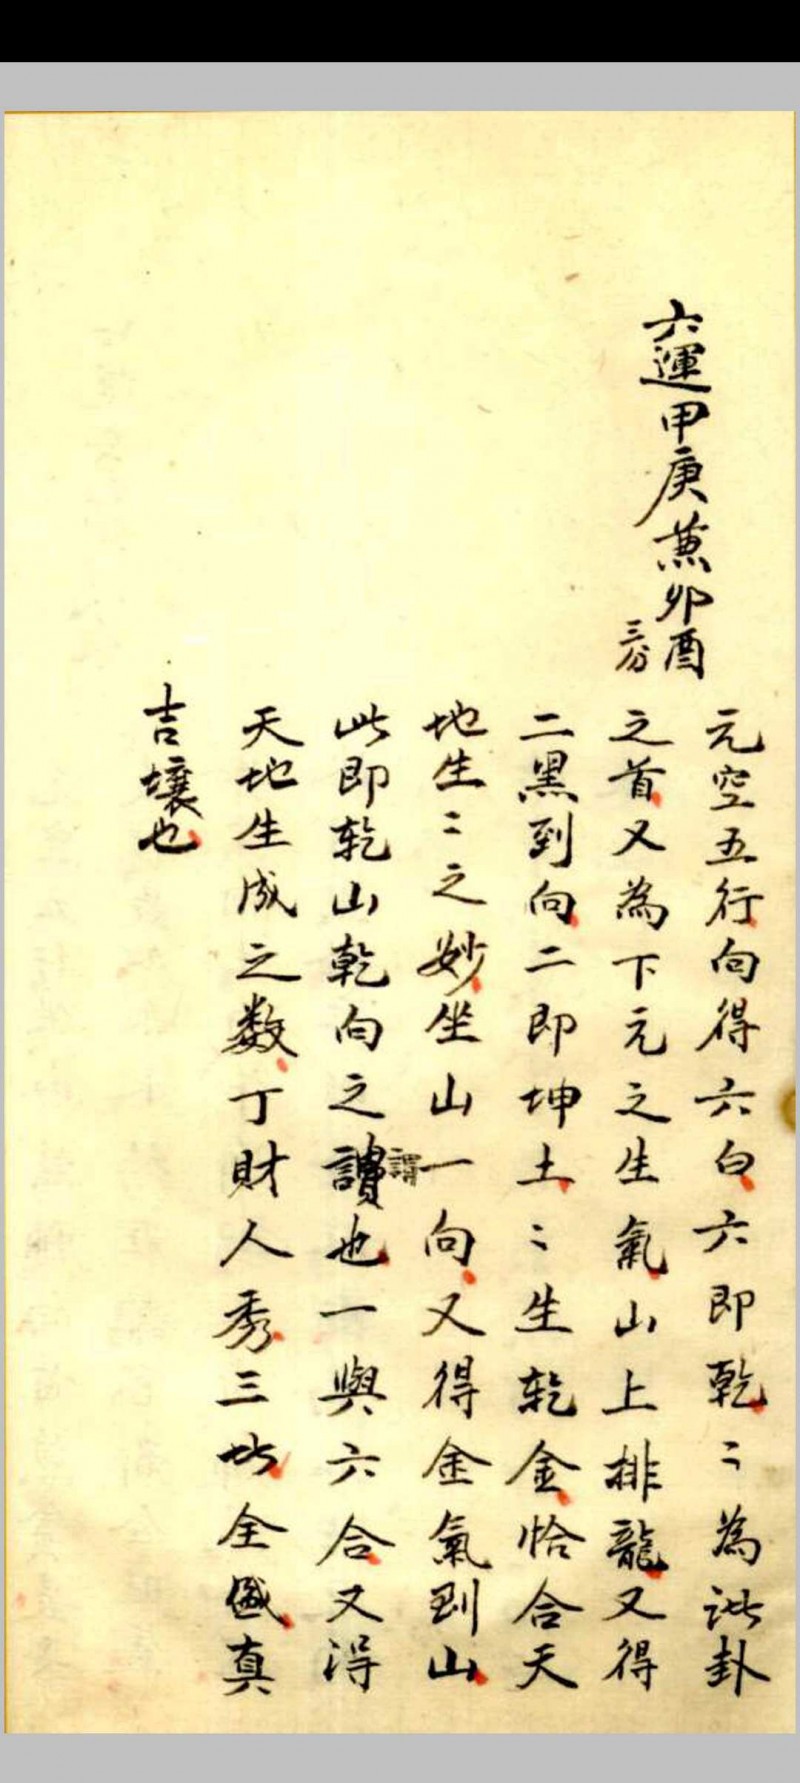 六運甲庚兼卯酉
三分
元空五行向得六白六即乾〻為諸卦
之首又為下元之生氣山上排龍又得
二黑到向二即坤土〻生乾金恰合天
地生〻之妙坐山一向又得金氣到山
此即乾山乾向之謂也一與六合又得
天地生成之数丁財人秀三此全盛真
吉壤也